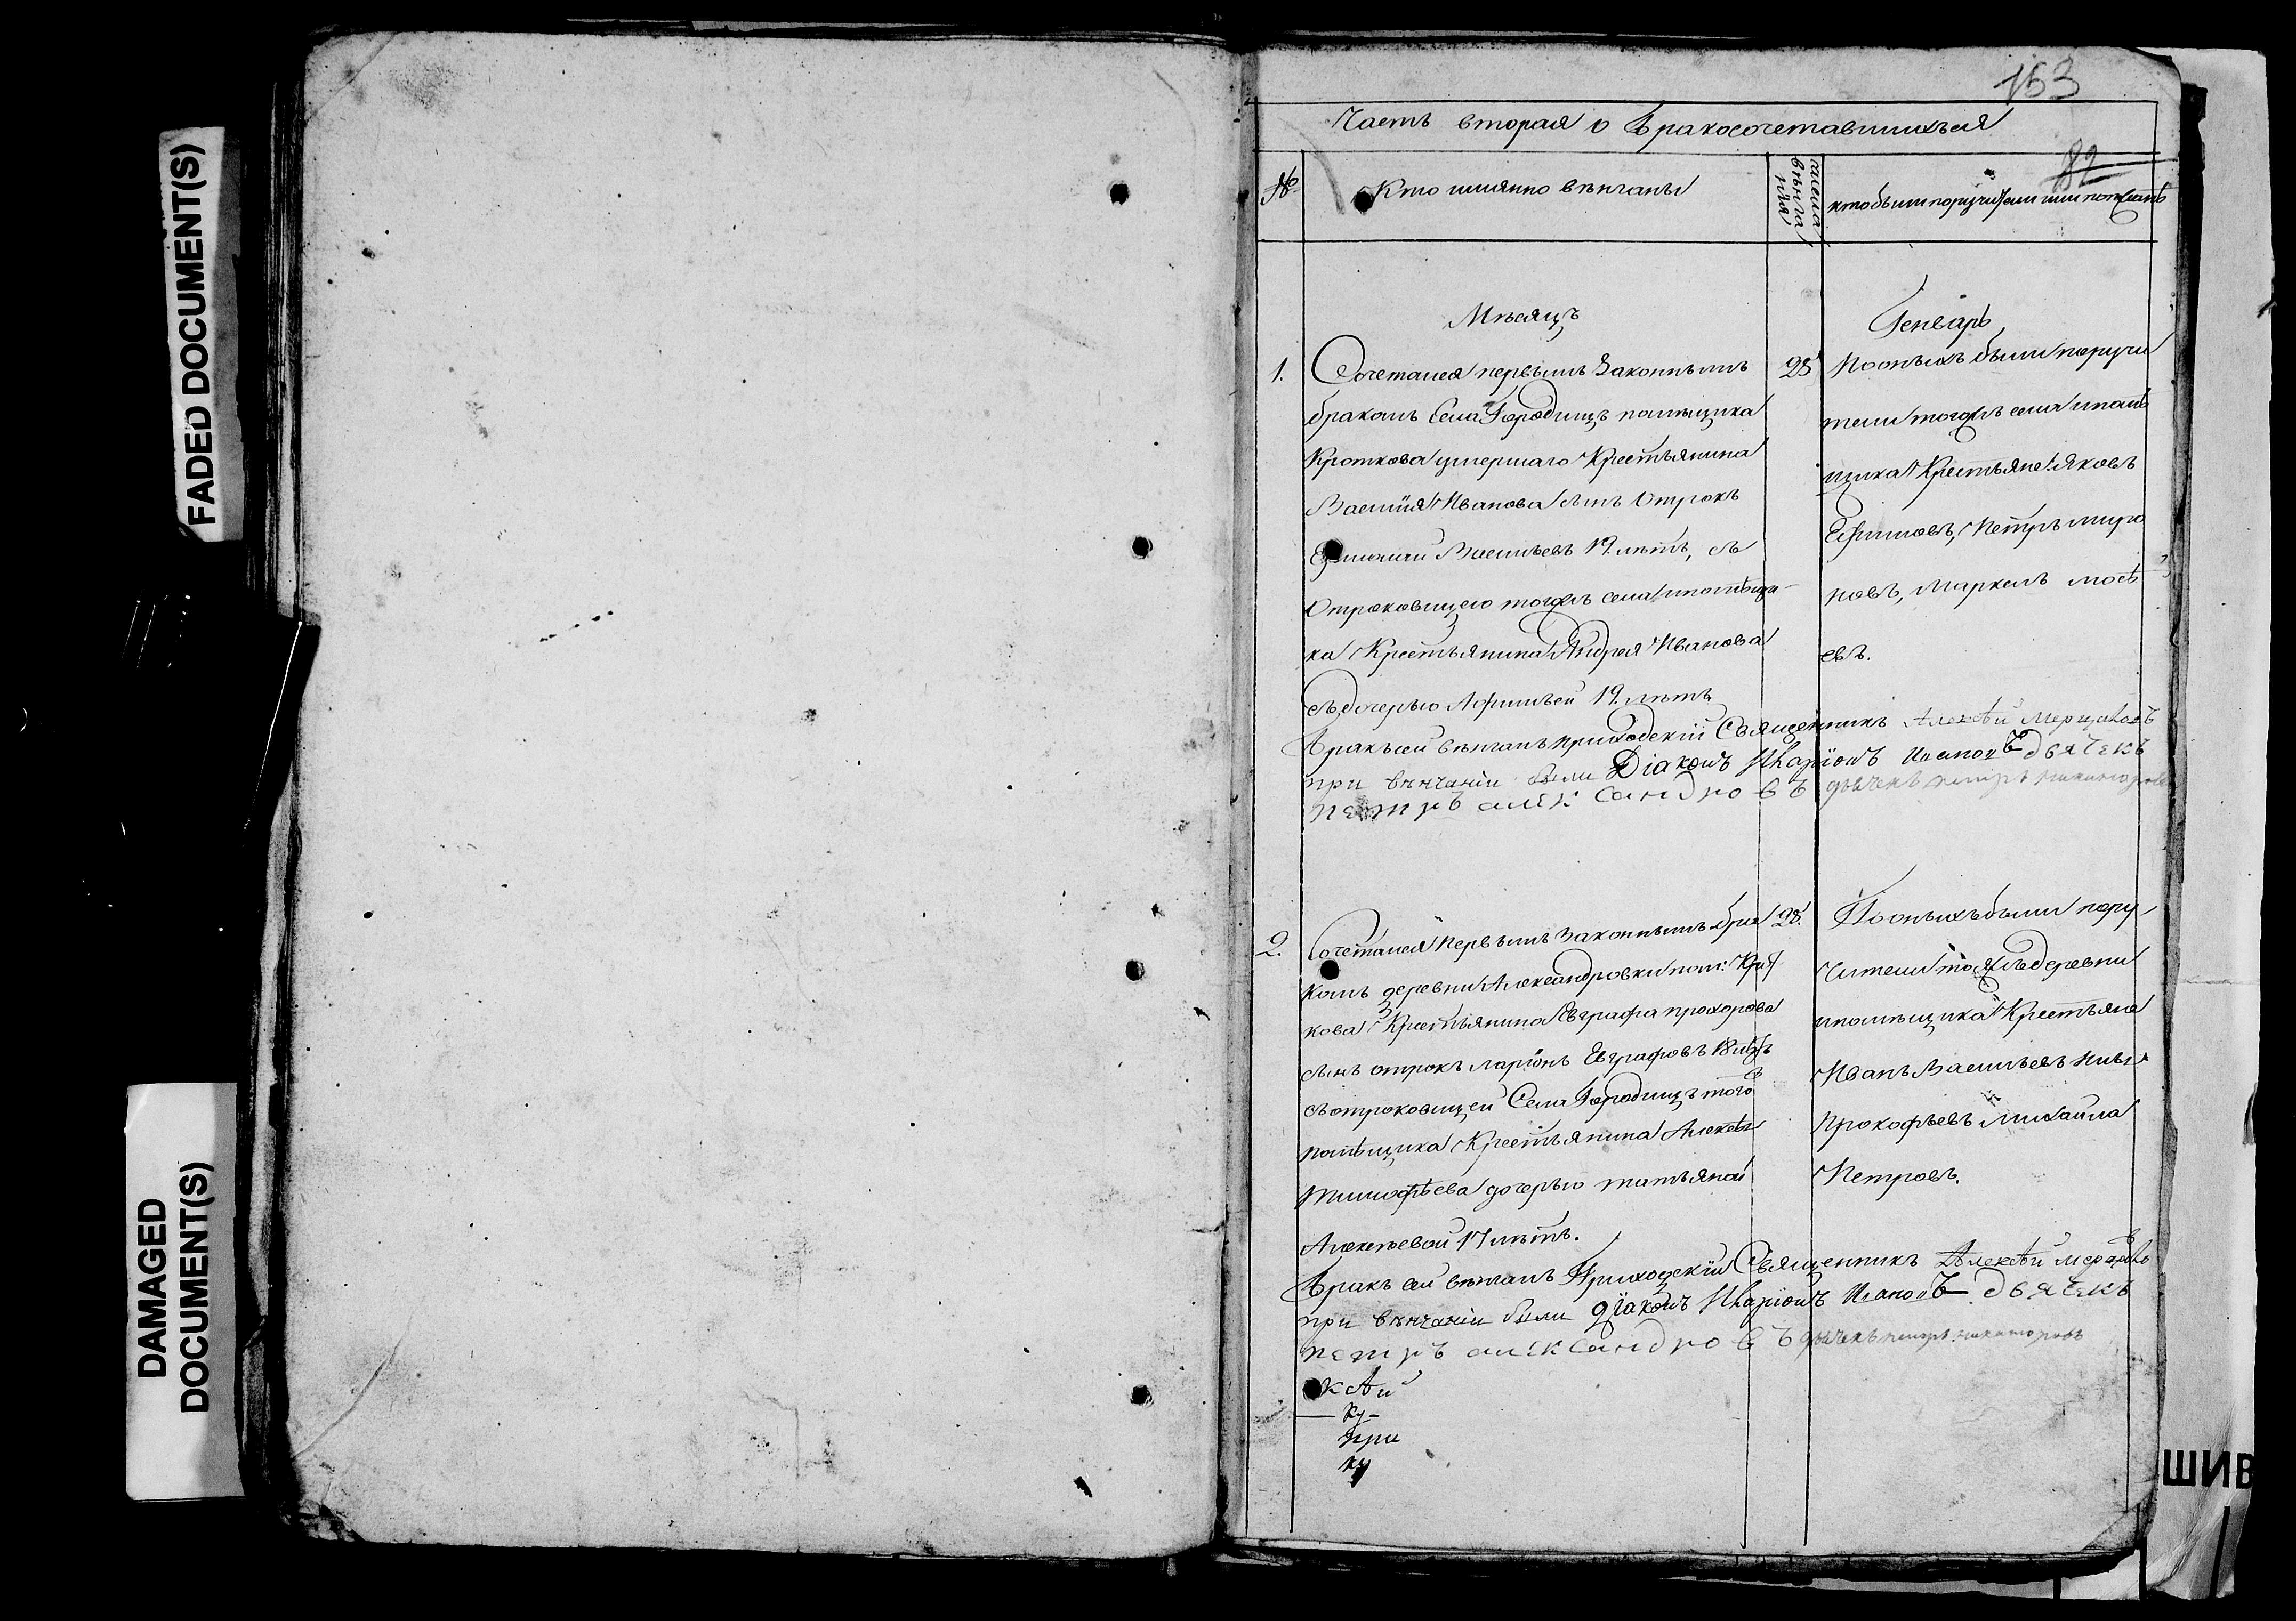 FADED DOCUMENT(S)
DAMAGED
DOCUMENT(S)
153
Часть вторая о бракосочетавшихъся
82
№
Кто имянно венчаны
числа
венча
нїя
кто были поручители или поезжанѣ
Мѣсяцъ
Генварь
1.
Сочетался первымъ Законнымъ
бракомъ Села Городищъ помѣщика
Кроткова умершаго Крестьянина
Василїя Иванова сынъ Отрокъ
Васильевъ 19. лѣтъ, съ
Отроковицею тогожъ села и помѣщи-
ка Крестьянина Андрея Иванова
съ дочерью Афимьей 19. лѣтъ
28
Поонымъ были поручи
тели тогожъ села и помѣ
щика Крестьяне Яковъ
Ефимовъ, Петръ миро
новъ, Маркелъ мосѣ
евъ.
Бракъ сей венчалъ приходскїй Священникъ Алексѣй
при венчанїи были Дїаконъ Иларїонъ Ивановъ дьячекъ
петръ александровъ
2.
Сочетался первымъ Законнымъ бра
комъ деревни Александровки пом: Крот
кова Крестьянина Евграфа прохорова
сынъ отрокъ ларїонъ Евграфовъ 18 лѣтъ
съ отроковицей Села Городищъ того
помѣщика Крестьянина Алексѣя
Тимофѣева дочерью татьяной
Алексѣевой 17 лѣтъ.
28.
Поонымъ были пору
чители тояжъ деревни
и помѣщика Крестьяне
Иванъ Васильевъ
Прокофьевъ Михайла
Петровъ.
Бракъ сей венчалъ Приходскїй Священникъ Алексѣй
при венчанїи были дїаконъ Иларїонъ Ивановъ дьячекъ
петръ александровъ
ксѣй
ку-
при
ку
ШИВ